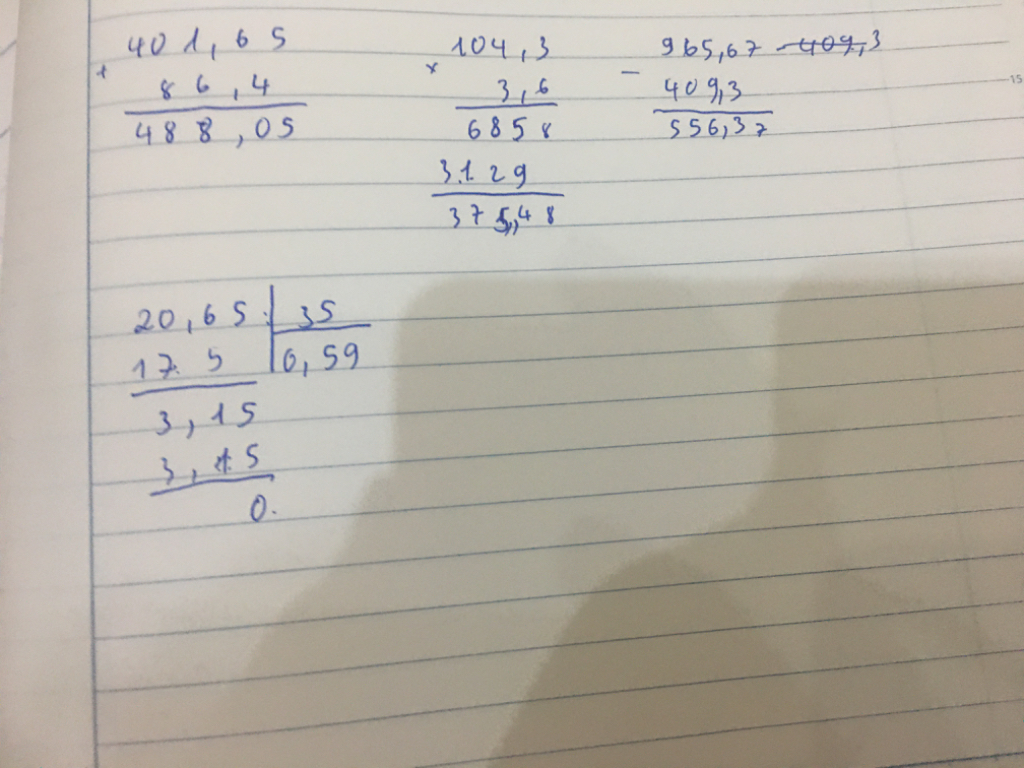 401,65
+
86,4
488,05
104,3
x
3,6
6858
3129
375,48
965,67 -409,3
-
409,3
556,37
15
20,65 35
17 5 0,59
3,15
3,15
0.